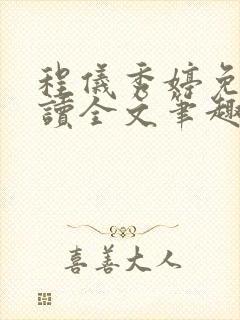 程儀秀婷免
讀全文筆趣
喜善大人